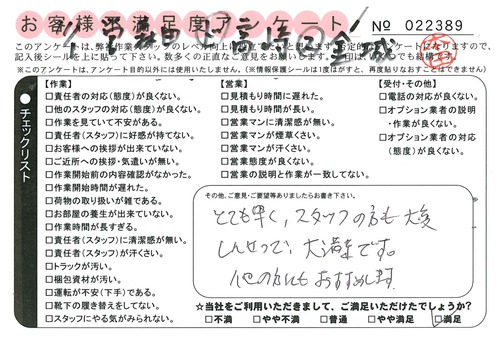 お客様不満足度アンケート
№ 022389
□責任者の対応(態度)が良くない。
□他のスタッフの対応(態度)が良くない。
□作業を見ていて不安がある。
□責任者(スタッフ)に好感が持てない。
□お客様への挨拶が出来ていない。
□ご近所への挨拶・気遣いが無い。
□作業開始前の内容確認がなかった。
□作業開始時間が遅れた。
□荷物の取り扱いが雑である。
□お部屋の養生が出来ていない。
□作業時間が長すぎる。
□責任者(スタッフ)に清潔感が無い。
□責任者(スタッフ)が汗くさい。
□トラックが汚い。
□梱包資材が汚い。
□運転が不安(下手)である。
□靴下の履き替えをしてない。
□スタッフにやる気がみられない。
チェックリスト
【作業】
【営業】
□見積もり時間に遅れた。
□見積もり時間が長い。
□営業マンに清潔感が無い。
□営業マンが煙草くさい。
□営業マンが汗くさい。
□営業態度が良くない。
□営業の説明と作業が一致してない。
【受付・その他】
□電話の対応が良くない。
□オプション業者の説明
・作業が良くない。
□オプション業者の対応
(態度)が良くない。
その他、ご意見・ご要望等ありましたらお書き下さい。
とても早く、スタッフの方も大変
しんせつで、大満足です。
他の方にもおすすめします
☆当社をご利用いただきまして、ご満足いただけたでしょうか?
□不満 □やや不満 □普通 □やや満足 □満足